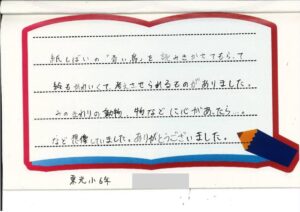 紙しばいの「青い鳥」を読みきかせてもらって
絵もかわいくて、考えさせられるものがありました。
みのまわりの動物、物などに心があったら…
など想像していました。ありがとうございました。
東元小6年